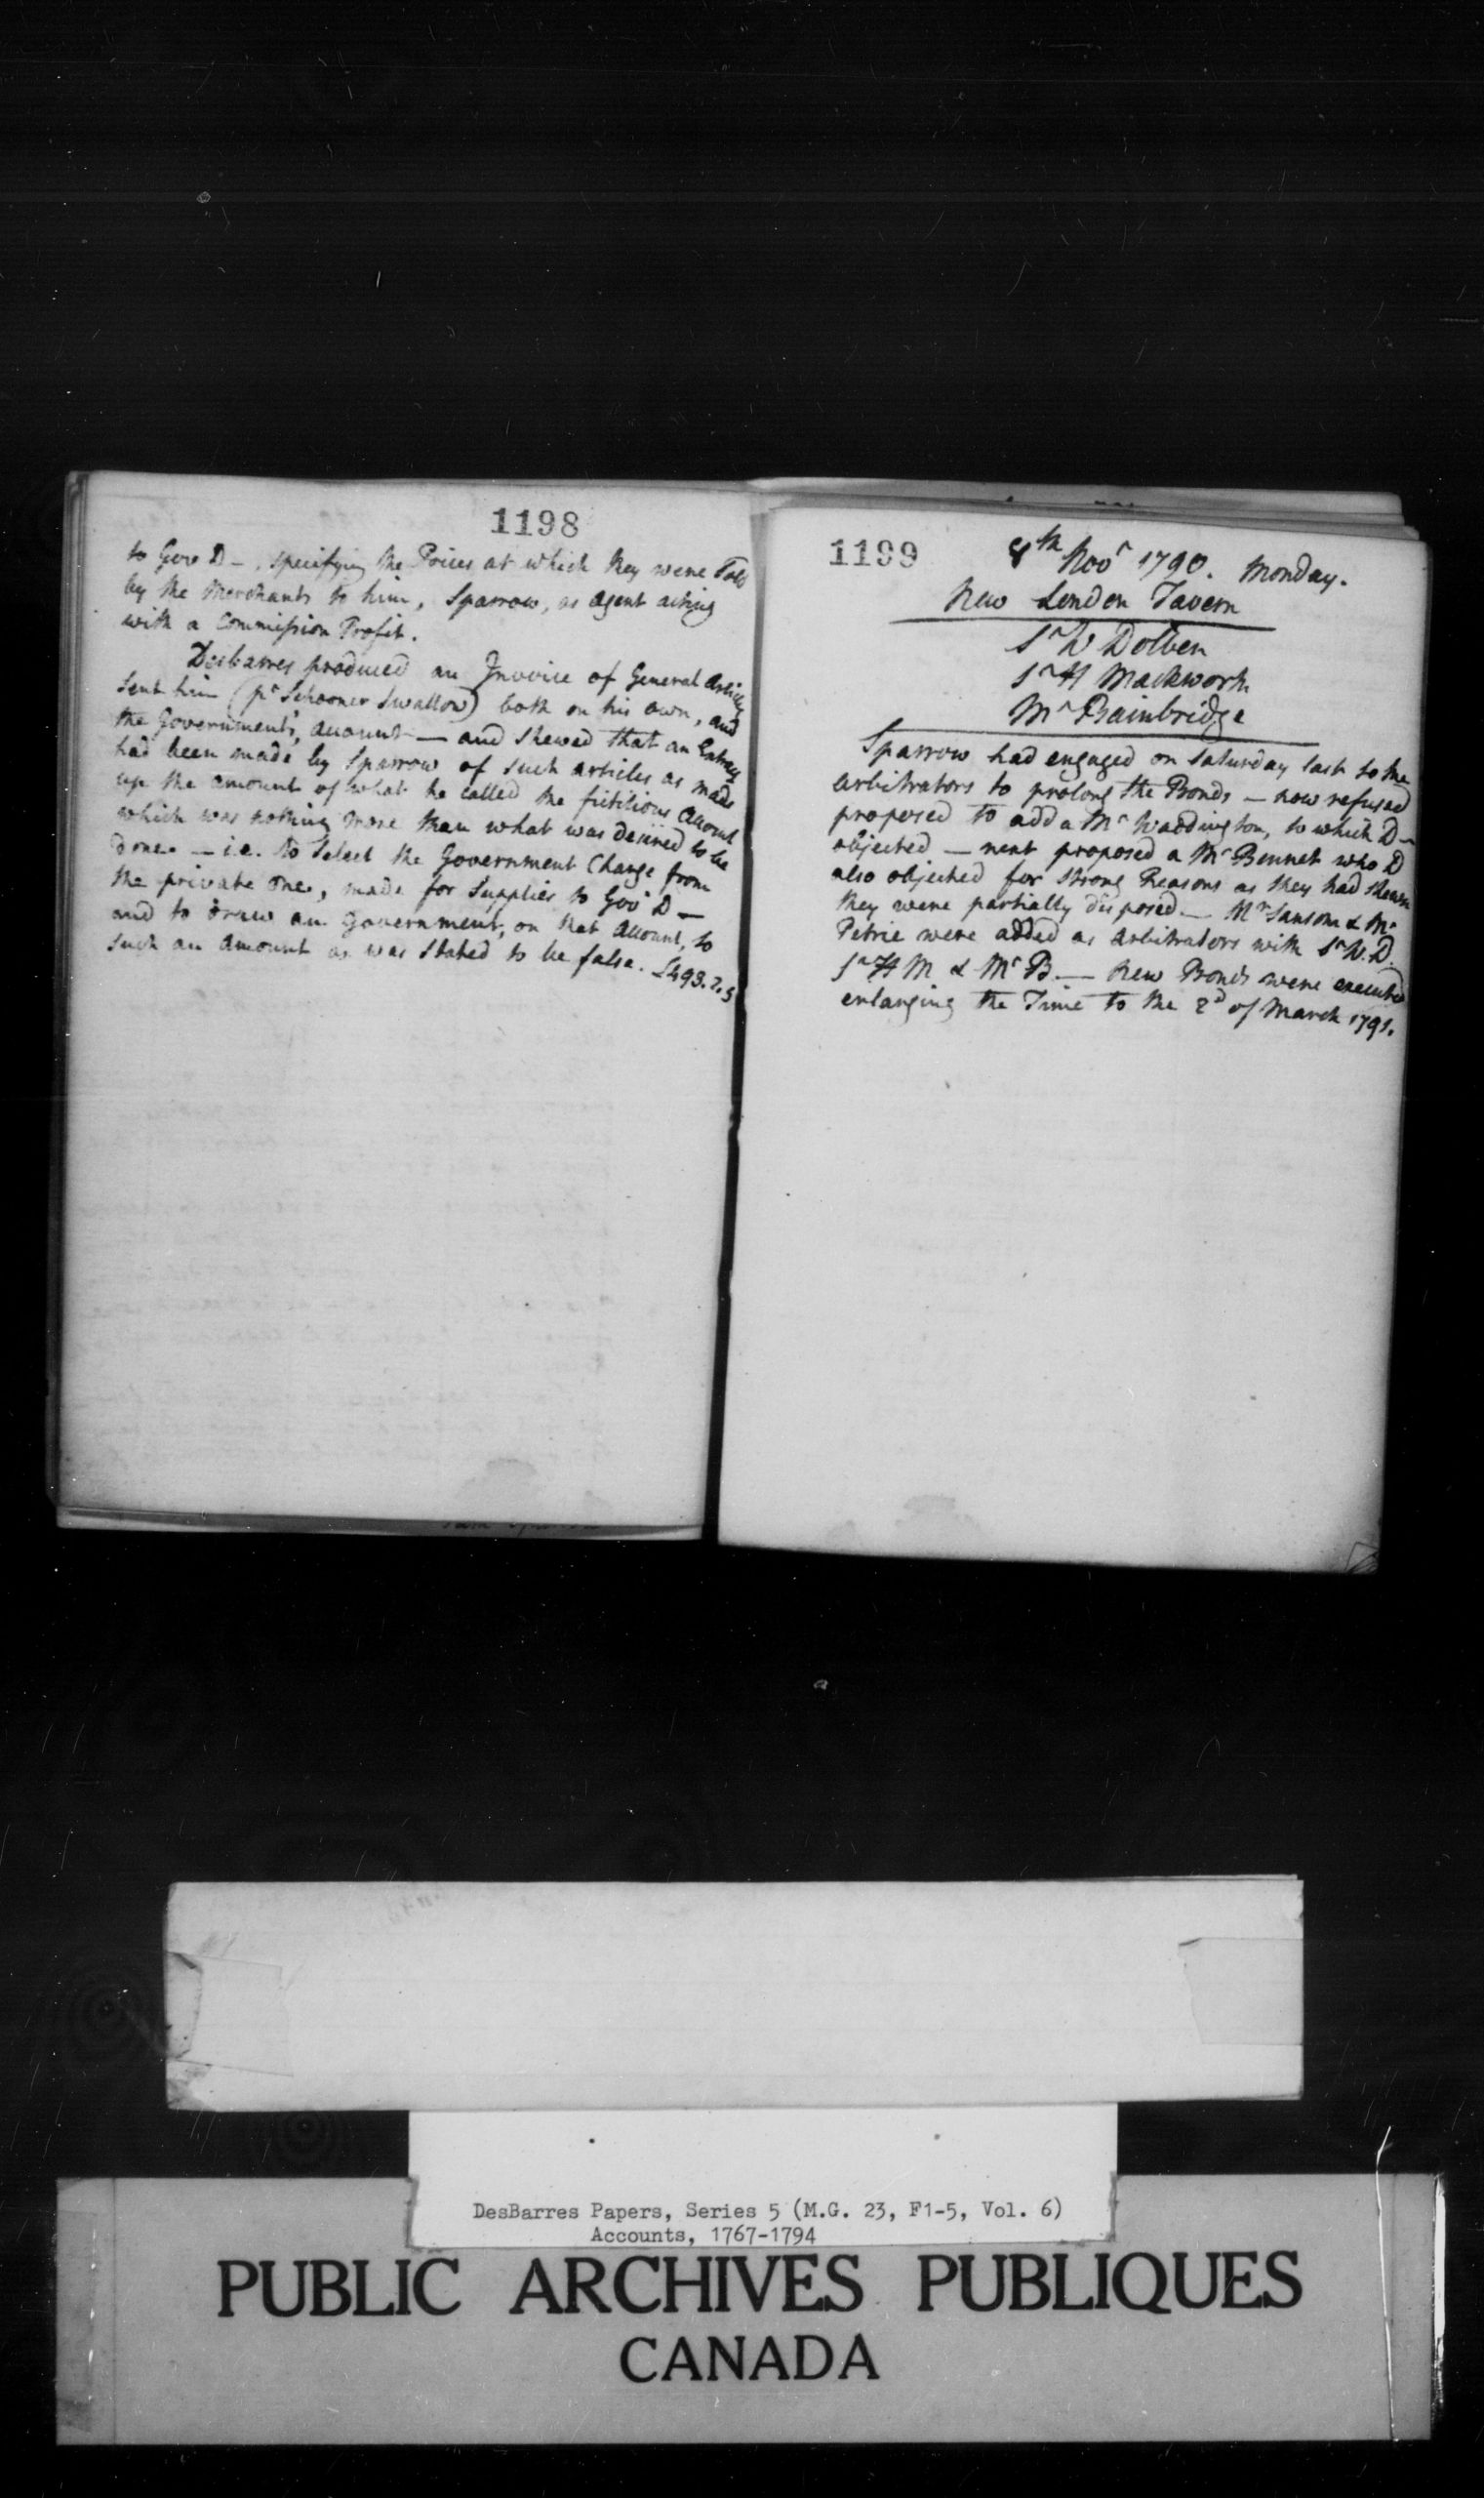 1198
to Gov D—, specifying the Prices at which they were Sold
by the Merchants to him, Sparrow, as Agent acting
with a Commission Profit.
Desbarres produced an Invoice of General Articles
sent him (pr Schooner Swallow) both on his own, and
the Government's, account — and shewed that an Extract
had been made by Sparrow of such articles as made
up the amount of what he called the fictitious Account
which was nothing more than what was desired to be
done. — i.e. to select the Government Charge from
the private one, made for Supplies to Govr D—
and to draw on Government, on that Account, to
such an amount as was stated to be false. £493.2.5
1199
8th Novr 1790. Monday.
New London Tavern
Sr W Dolben
Sr H Mackworth
Mr Bainbridge
Sparrow had engaged on Saturday last to the
arbitrators to prolong the Bonds — now refused
proposed to add a Mr Waddington, to which D—
objected — next proposed a Mr Bennet who D
also objected for strong Reasons as they had shewn
they were partially disposed — Mr Sansom & Mr
Petrie were added as Arbitrators with Sr W. D.
Sr H M & Mr B — New Bonds were executed
enlarging the Time to the 2d of March 1791.
DesBarres Papers, Series 5 (M.G. 23, F1-5, Vol. 6)
Accounts, 1767-1794
PUBLIC ARCHIVES PUBLIQUES
CANADA